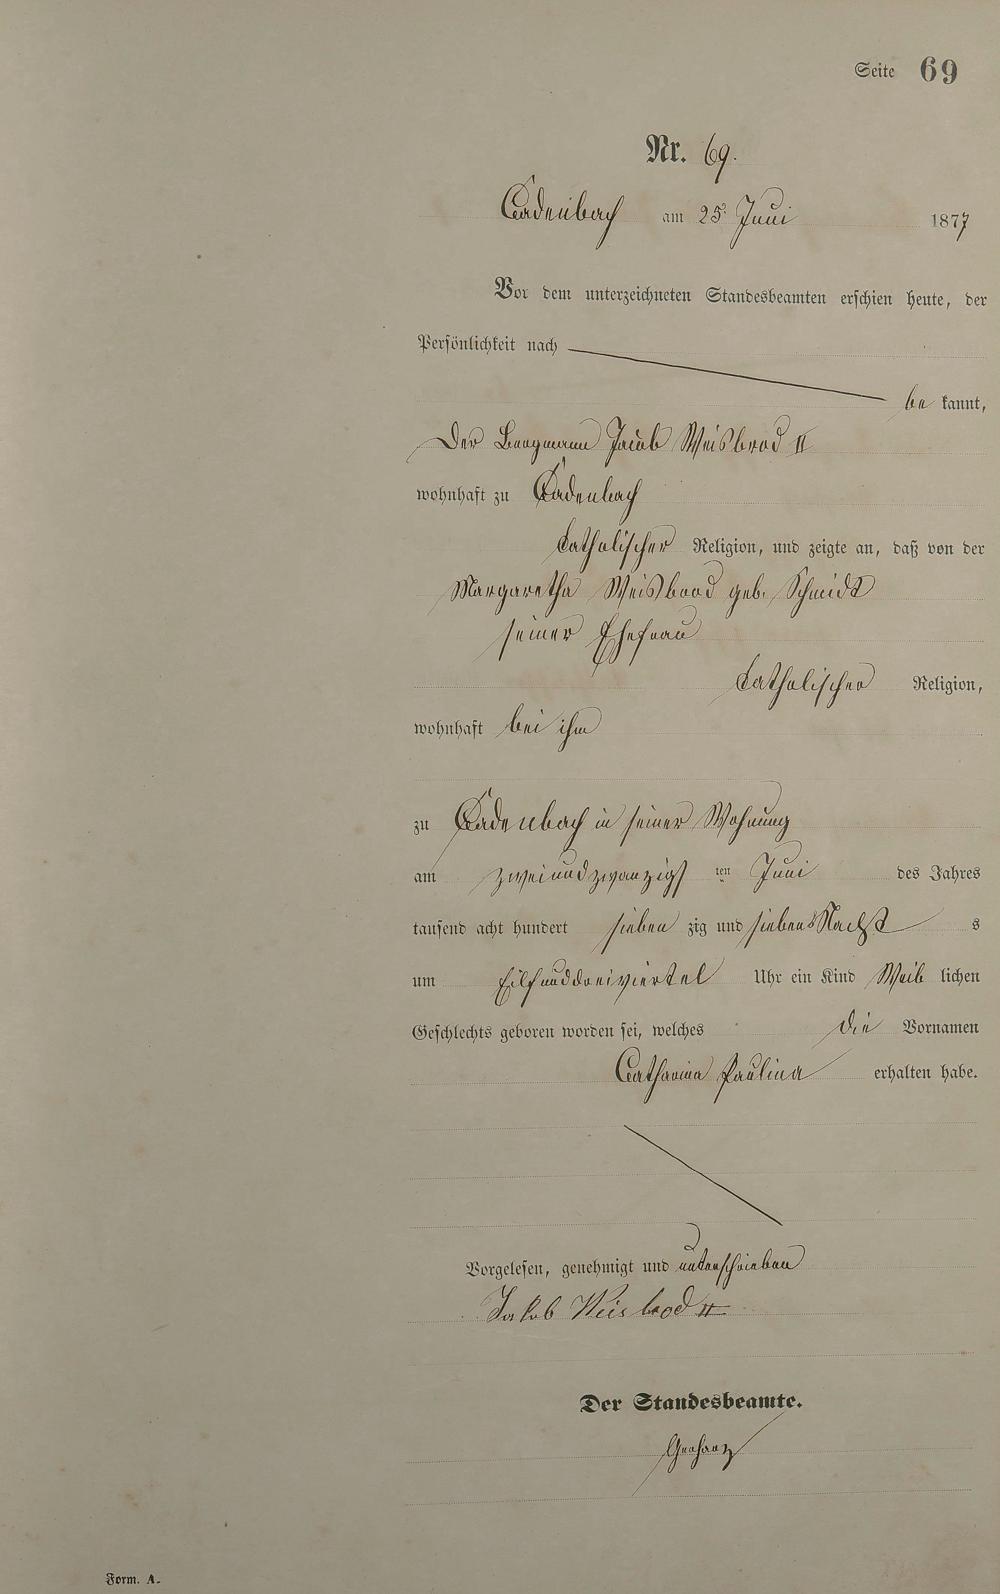 Seite 69
Nr. 69.
Cadenbach am 25. Juni 1877
Vor dem unterzeichneten Standesbeamten erschien heute, der
Persönlichkeit nach
be kannt,
Der Bergmann Jacob Weisbrod II
wohnhaft zu Cadenbach
katholischer Religion, und zeigte an, daß von der
Margaretha Weisbrod geb. Schmidt
seiner Ehefrau
katholischer Religion,
wohnhaft bei ihm
zu Cadenbach in seiner Wohnung
am zweiundzwanzigs ten Juni des Jahres
tausend acht hundert sieben zig und sieben Nacht s
um Eilfunddreiviertel Uhr ein Kind Weib lichen
Geschlechts geboren worden sei, welches die Vornamen
Catharina Paulina erhalten habe.
Vorgelesen, genehmigt und unterschrieben
Jakob Weisbrod II
Der Standesbeamte.
Gerharz
Form. A.